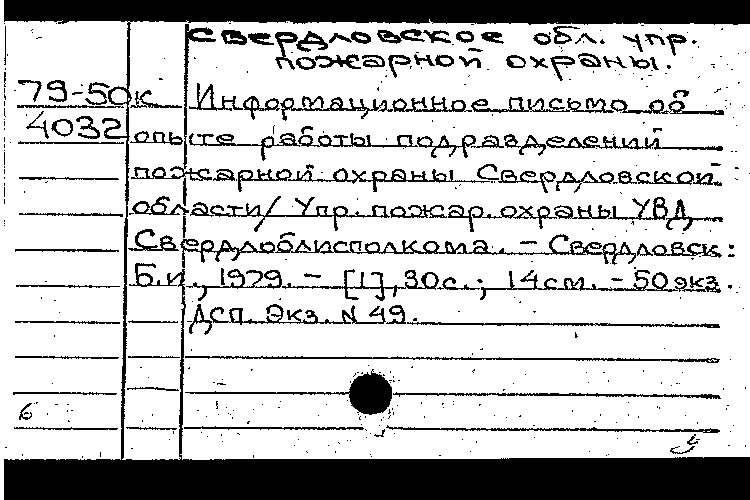 Свердловское обл. упр.
пожарной охраны.
79-50к Информационное письмо об
4032 опыте работы подразделений
пожарной охраны Свердловской
области/ Упр. пожар. охраны УВД
Свердлоблисполкома. - Свердловск:
Б.и., 1979. - [1], 30с.; 14см. - 50экз.
Дсп. Экз. N 49.
6